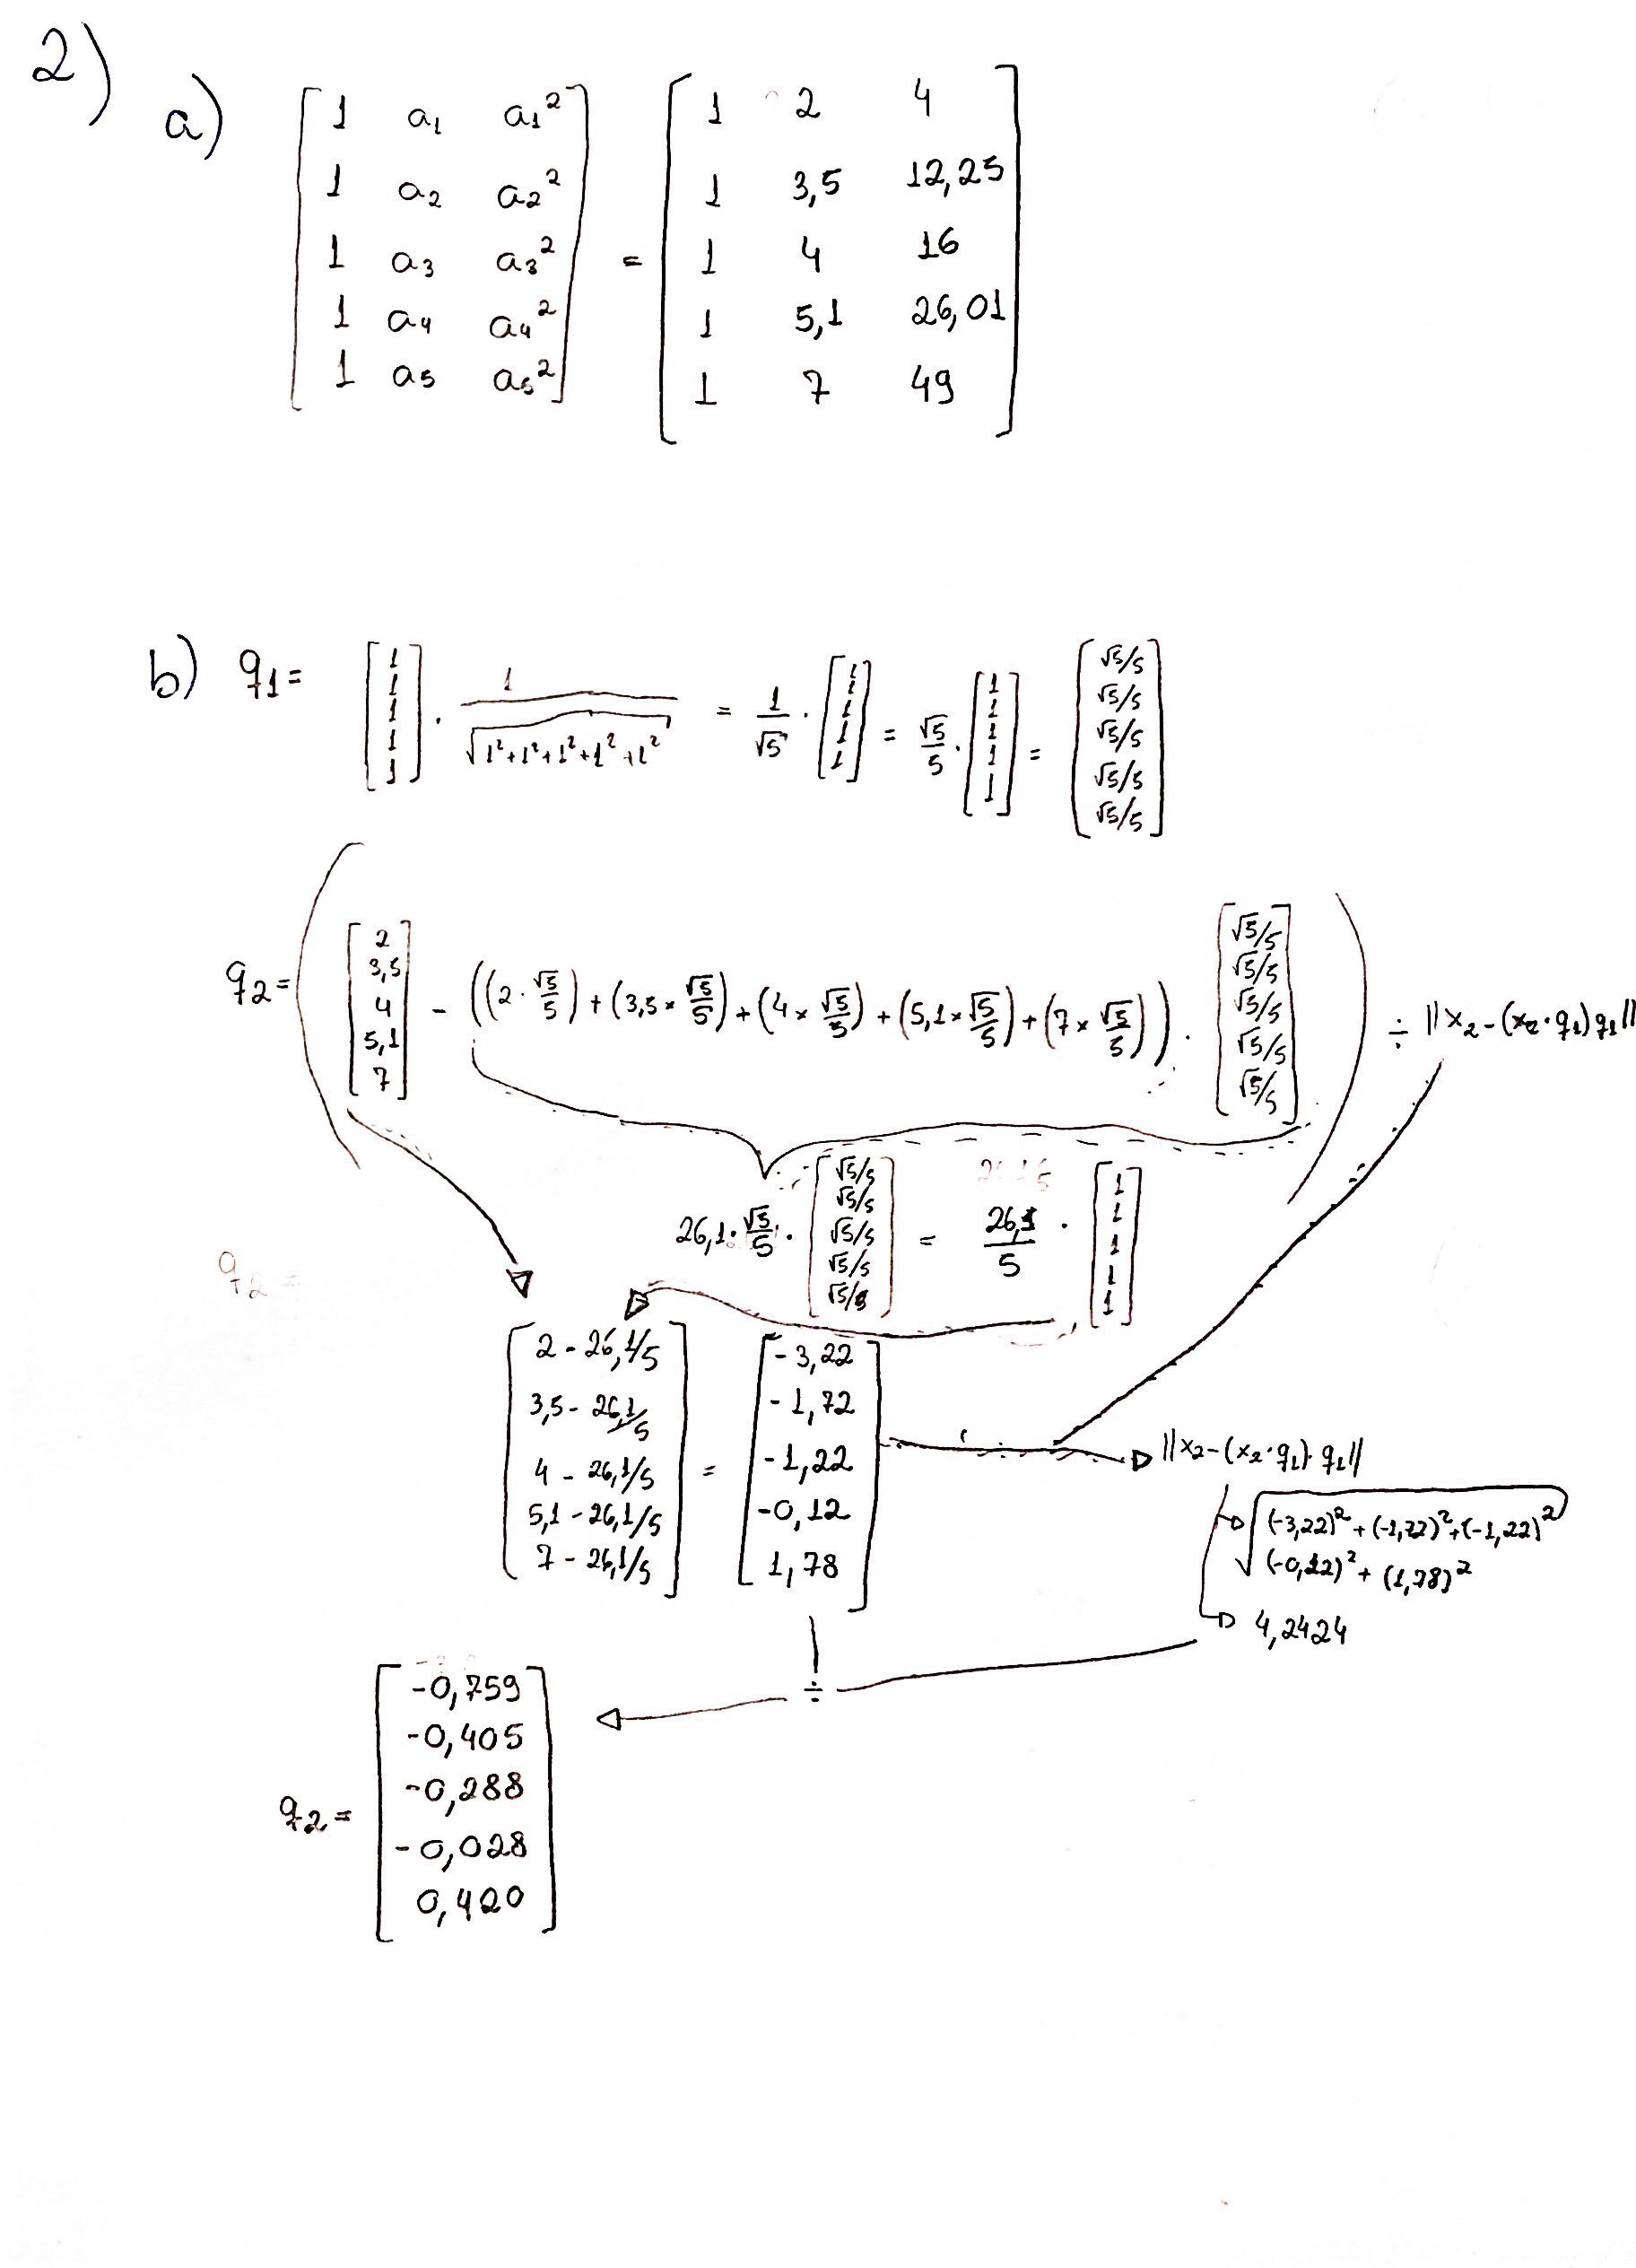 2)
a) [1 a₁ a₁²] = [1 2 4]
[1 a₂ a₂²] [1 3,5 12,25]
[1 a₃ a₃²] [1 4 16]
[1 a₄ a₄²] [1 5,1 26,01]
[1 a₅ a₅²] [1 7 49]
b) q₁ = [1 1 1 1 1] · 1/√(1²+1²+1²+1²+1²) = 1/√5 · [1 1 1 1 1] = √5/5 · [1 1 1 1 1] = [√5/5 √5/5 √5/5 √5/5 √5/5]
q₂ = ([2 3,5 4 5,1 7] - ((2·√5/5)+(3,5×√5/5)+(4×√5/5)+(5,1×√5/5)+(7×√5/5)) · [√5/5 √5/5 √5/5 √5/5 √5/5]) ÷ ||x₂-(x₂·q₁)q₁||
26,1·√5/5 · [√5/5 √5/5 √5/5 √5/5 √5/5] = 26,1/5 · [1 1 1 1 1]
q₂ =
[2 - 26,1/5] = [-3,22]
[3,5 - 26,1/5] [-1,72]
[4 - 26,1/5] [-1,22]
[5,1 - 26,1/5] [-0,12]
[7 - 26,1/5] [1,78]
||x₂-(x₂·q₁)·q₁||
√(-3,22)²+(-1,72)²+(-1,22)²
(-0,12)²+(1,78)²
4,2424
÷
q₂ = [-0,759]
[-0,405]
[-0,288]
[-0,028]
[0,420]